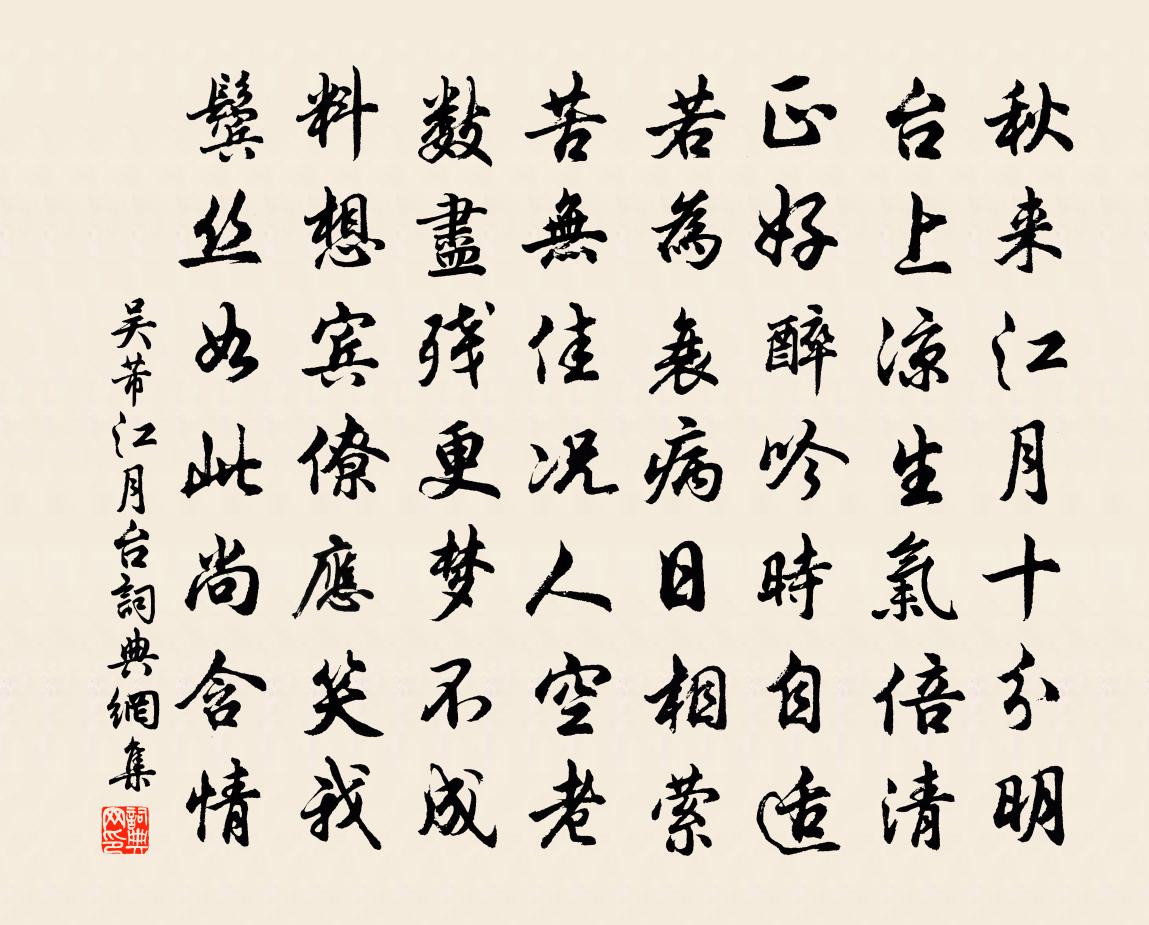 秋来江月十分明
台上凉生氣倍清
正好醉吟時自适
若為衰病日相萦
苦無佳况人空老
数盡残更梦不成
料想宾僚應笑我
鬓丝如此尚含情
吴芾江月台詞典網集
詞典网印